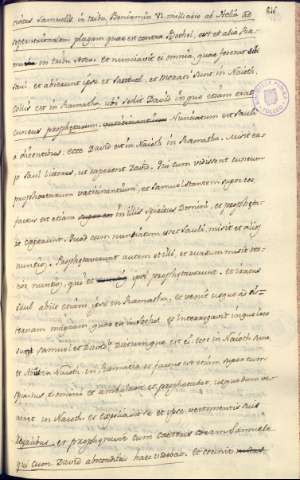 civitas Samuelis in tribu Beniamin VI milliario ad Aelia ad
septentrionalem plagam quae est contra Bethel, est et alia Ra-
in tribu et nunciavit ei omnia, quae fecerat sibi
Saul. et abierunt ipse et Samuel, et morati sunt in Naioth.
collis est in Ramatha ubi sedit David in quo etiam erat
cuneus prophetarum Nunciatum est Sauli
a dicentibus. ecce David est in Naioth in Ramatha. Misit er-
go Saul lictores, ut raperent David. Qui cum vidissent cuneum
prophetarum vaticinantium, et Samuelem stantem super eos
factus est etiam in illis spiritus Domini, et propheta-
re coeperunt. Quod cum nunciatum esset Sauli, misit et alios
nuncios. Prophetaverunt autem et illi, et rursum misit ter-
tios nuncios, qui et ipsi prophetaverunt. et iratus
Saul abiit etiam ipse in Ramatha, et venit usque ad cis-
ternam magnam, quae est in Socho, et interrogavit in quo loco
sunt Samuel et David. Dictumque est ei: ecce in Naioth sunt
in Naioth in Ramatha et factus est etiam super eum
spiritus Domini et ambulans et prophetabat usque dum ve-
niret in Naioth. et expoliavit se et ipse vestimentis suis
Regalibus et prophetavit cum caeteris coram Samuele
qui cum David abscondito haec videbat. et cecinit